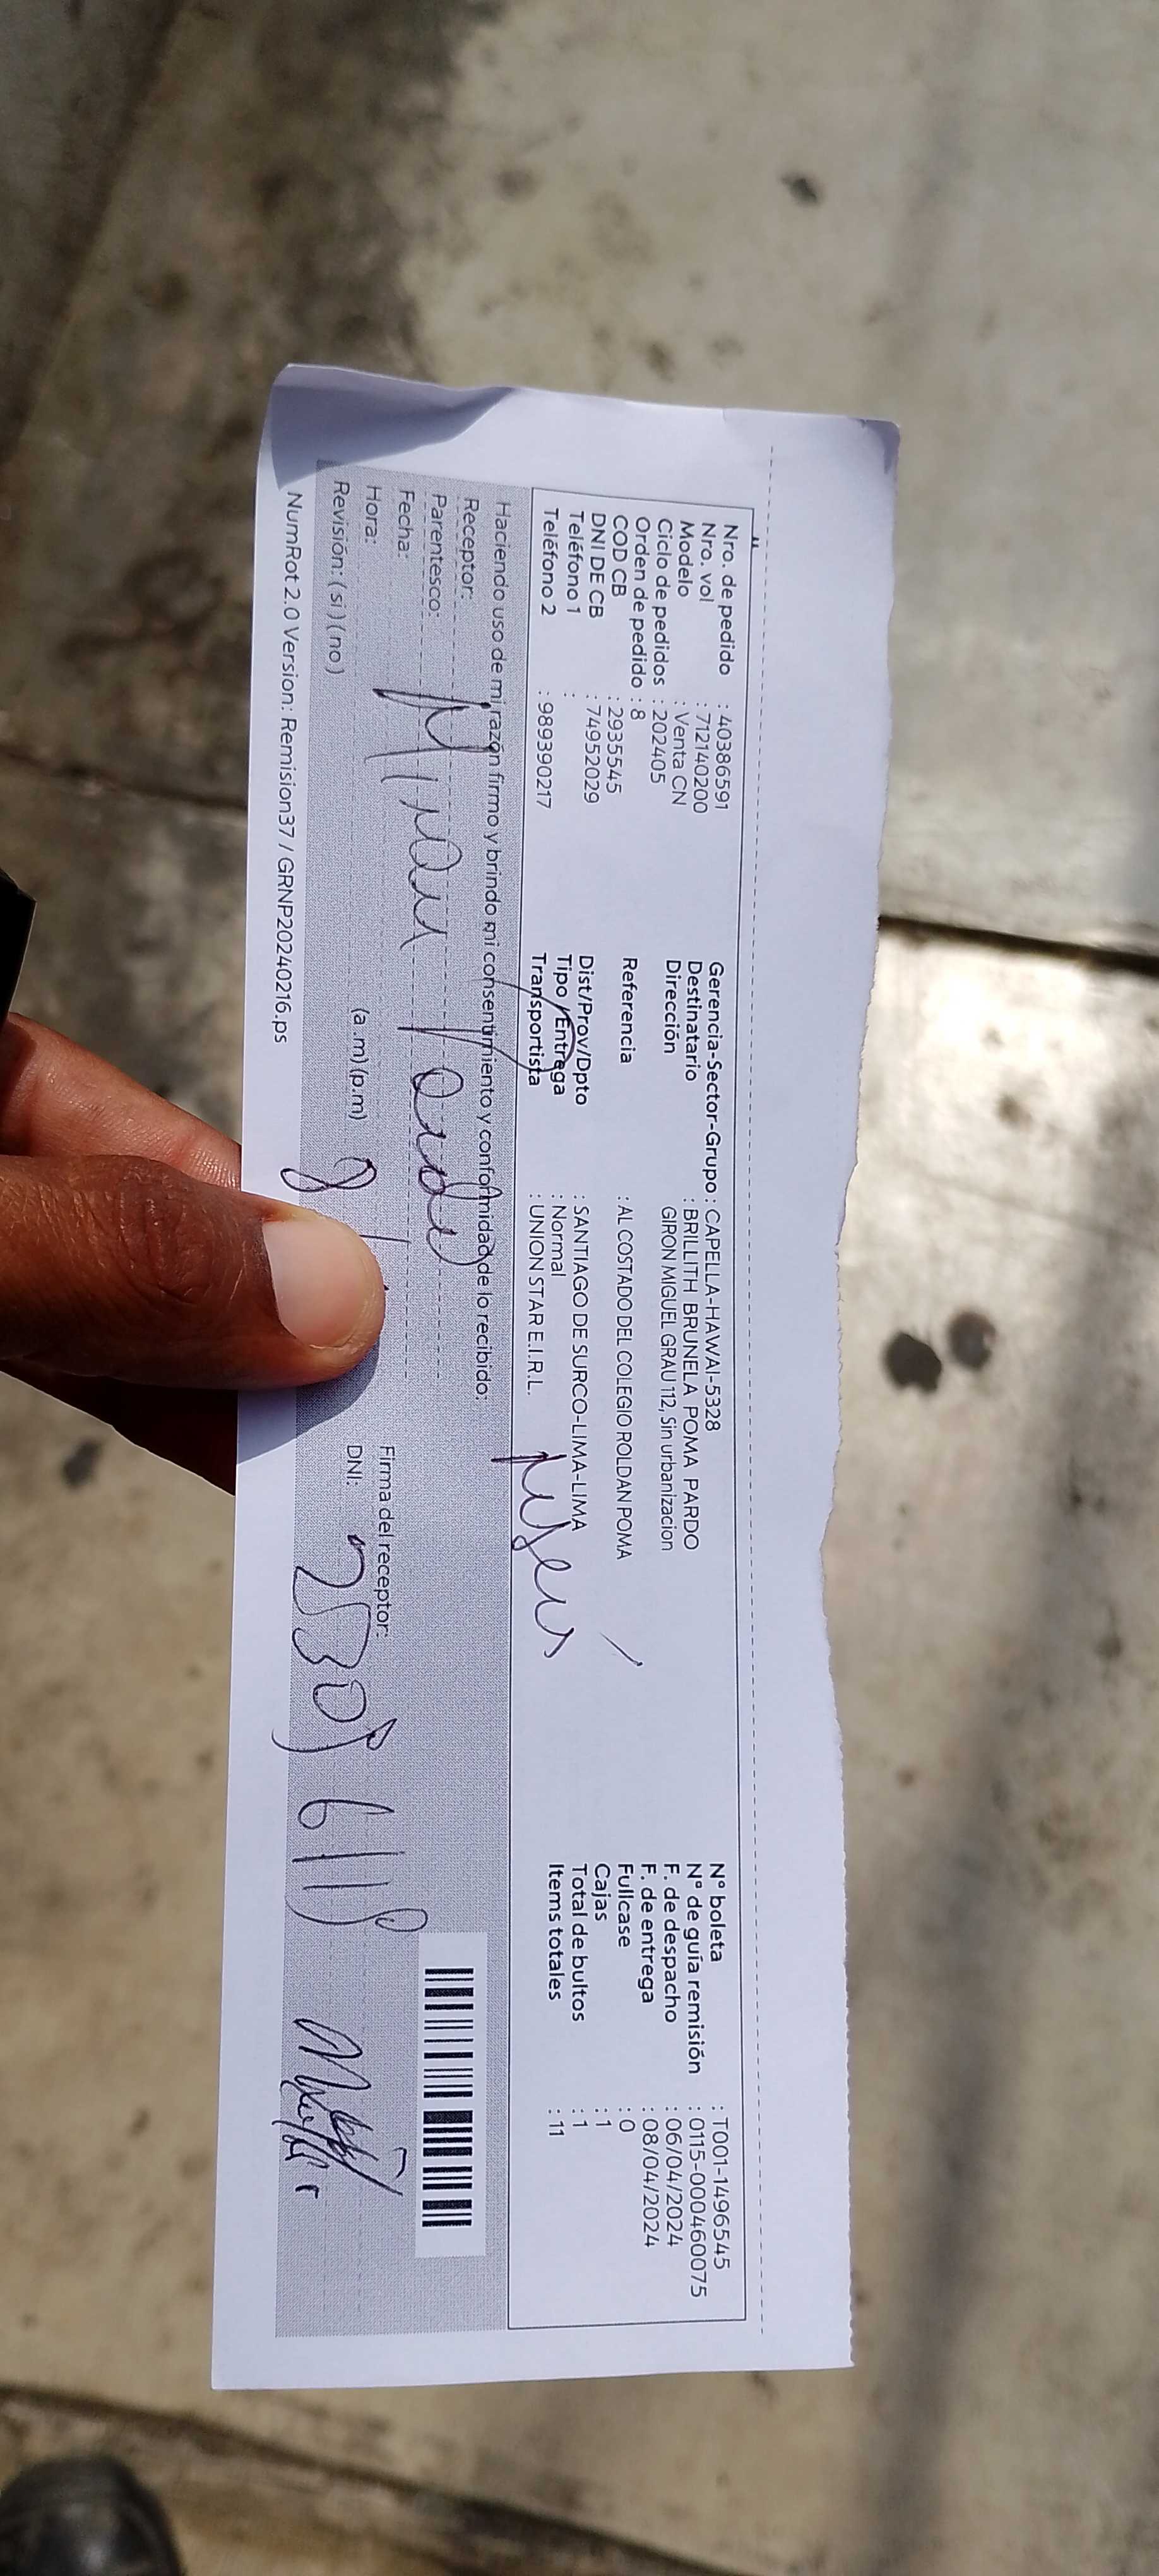 Nro. de pedido : 40386591
Nro. vol : 712140200
Modelo : Venta CN
Ciclo de pedidos : 202405
Orden de pedido : 8
COD CB : 2935545
DNI DE CB : 74952029
Teléfono 1 :
Teléfono 2 : 989390217
Gerencia-Sector-Grupo : CAPELLA-HAWAI-5328
Destinatario : BRILLITH BRUNELA POMA PARDO
Dirección GIRON MIGUEL GRAU 112, Sin urbanizacion
Referencia : AL COSTADO DEL COLEGIO ROLDAN POMA
Dist/Prov/Dpto : SANTIAGO DE SURCO-LIMA-LIMA
Tipo / Entrega : Normal
Transportista : UNION STAR E.I.R.L.
N° boleta : T001-1496545
N° de guía remisión : 0115-000460075
F. de despacho : 06/04/2024
F. de entrega : 08/04/2024
Fullcase : 0
Cajas : 1
Total de bultos : 1
Items totales : 11
Haciendo uso de mi razón firmo y brindo mi consentimiento y conformidad de lo recibido:
Receptor:
Parentesco:
Fecha:
Hora: (a.m)(p.m)
Revisión: (si) (no)
Firma del receptor:
DNI:
NumRot 2.0 Version: Remision37 / GRNP20240216.ps